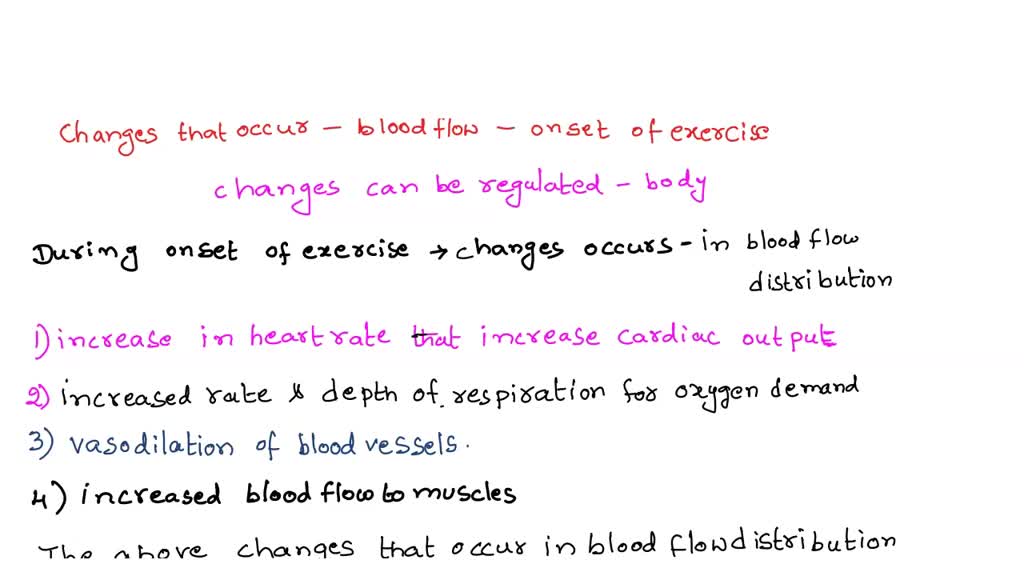 Changes that occur - blood flow - onset of exercise
changes can be regulated - body
During onset of exercise → changes occurs - in blood flow
distribution
1) increase in heart rate that increase cardiac output
2) increased rate & depth of respiration for oxygen demand
3) vasodilation of blood vessels.
4) increased blood flow to muscles
The above changes that occur in blood flow distribution